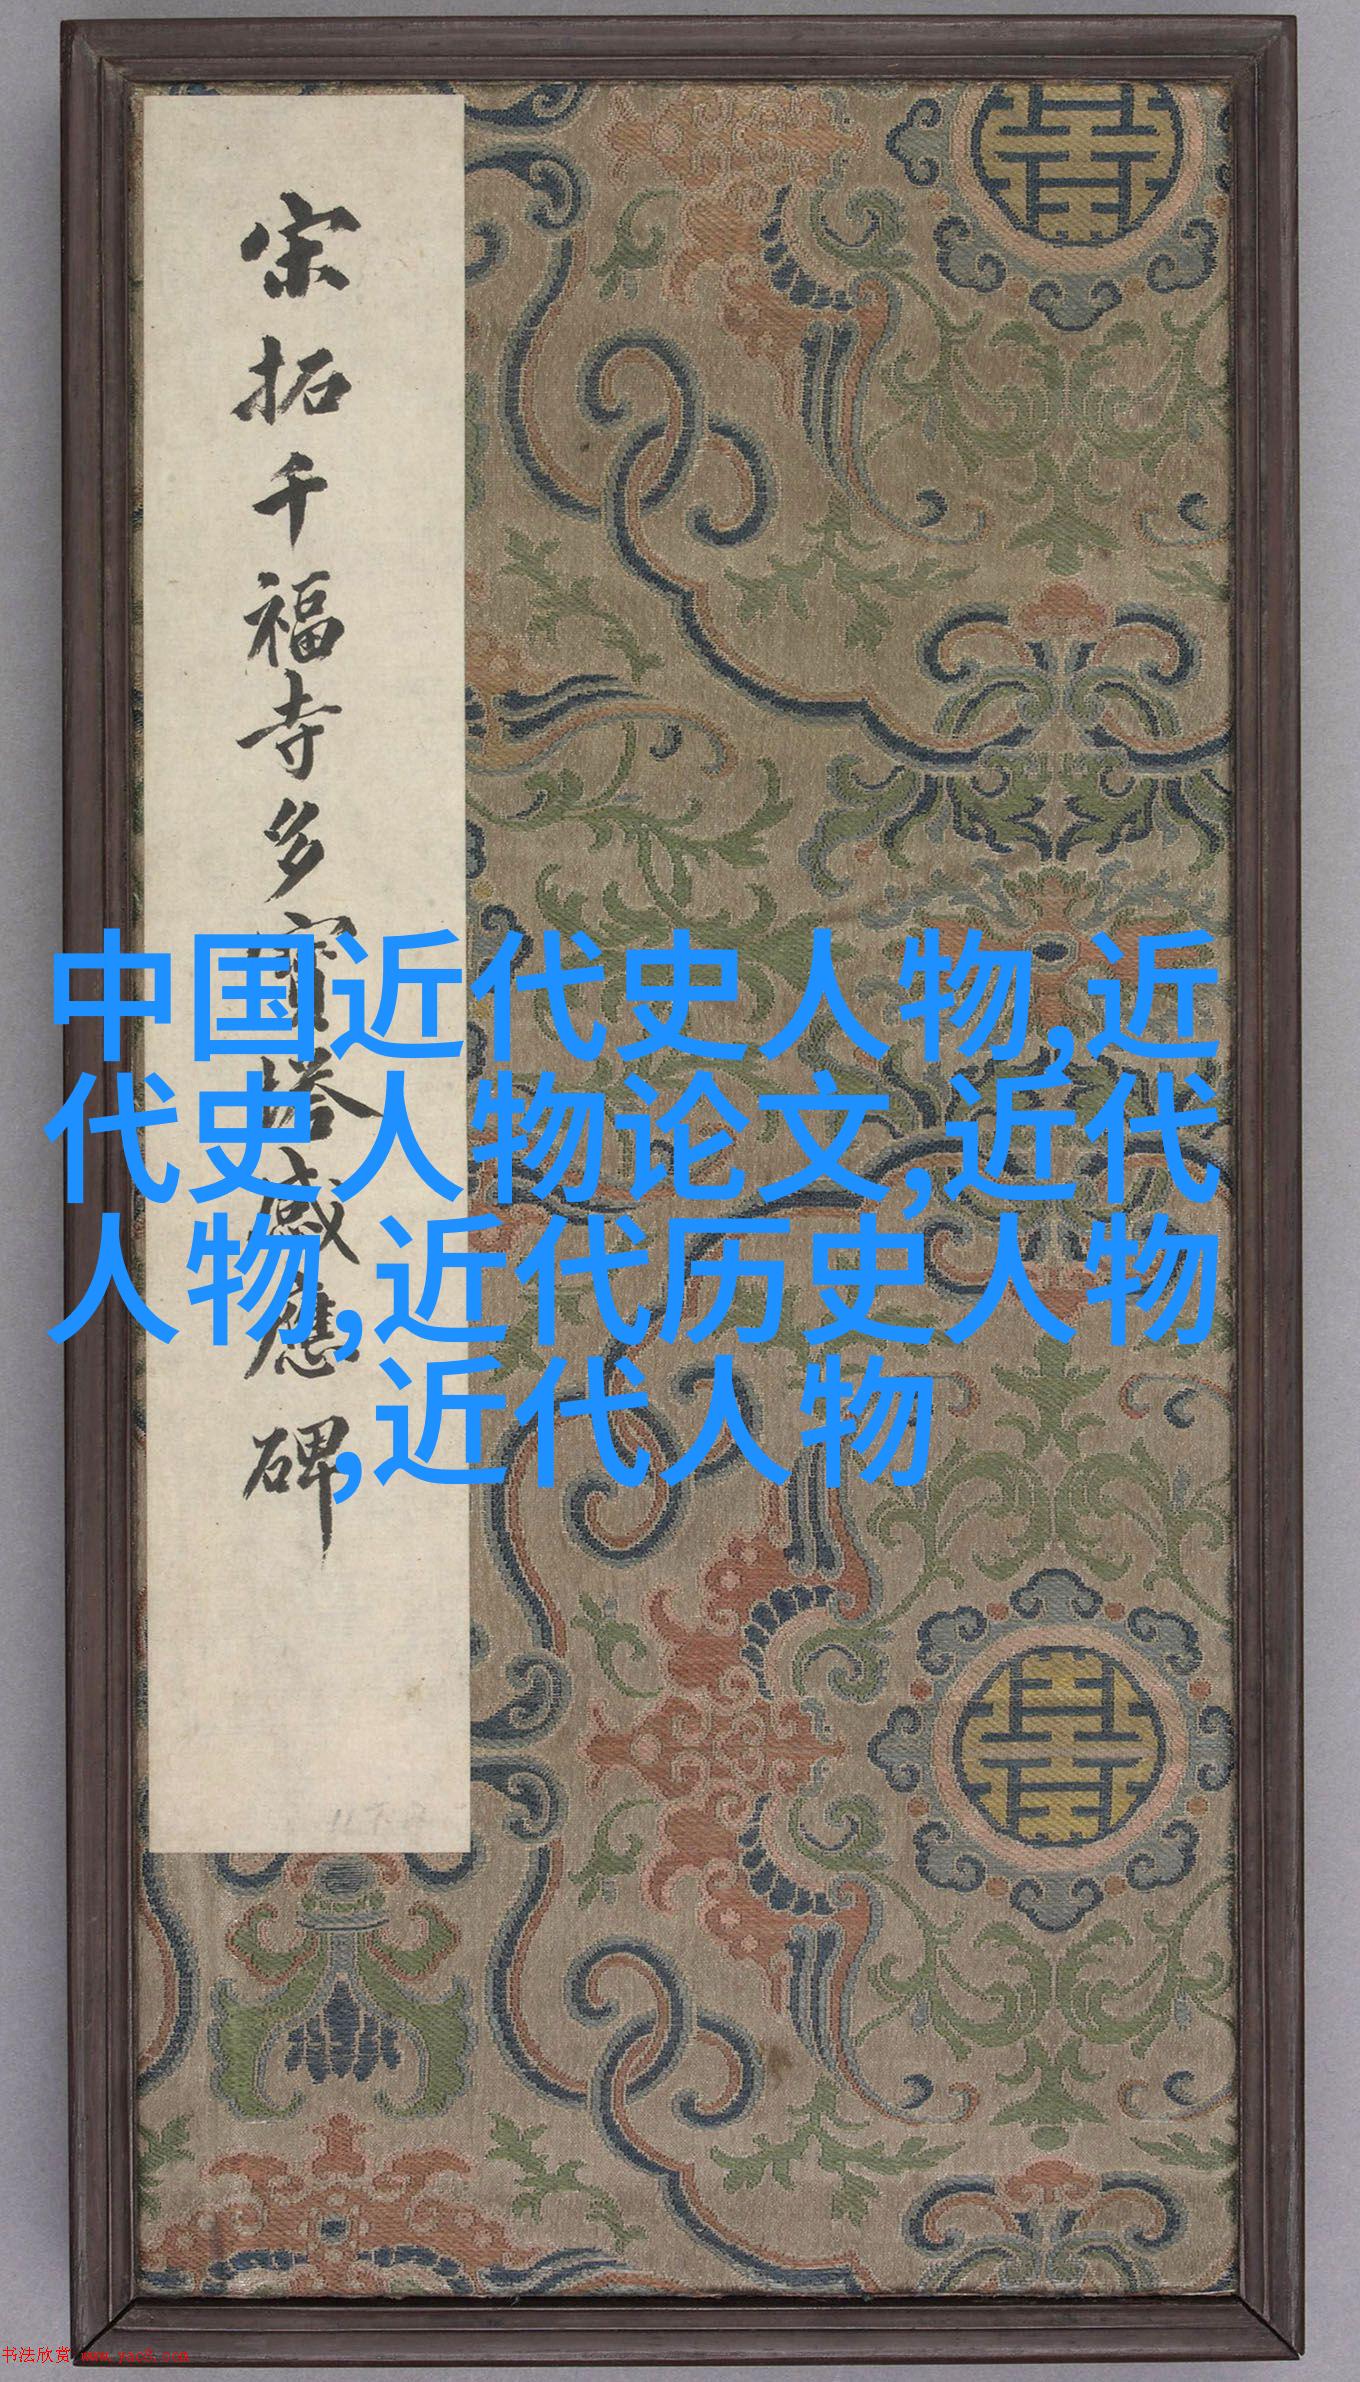 宋拓千福寺多寶塔感應碑
中国近代史人物,近
代史人物论文,近代
人物,近代历史人物
,近代人物
书法欣赏 www.yac8.com